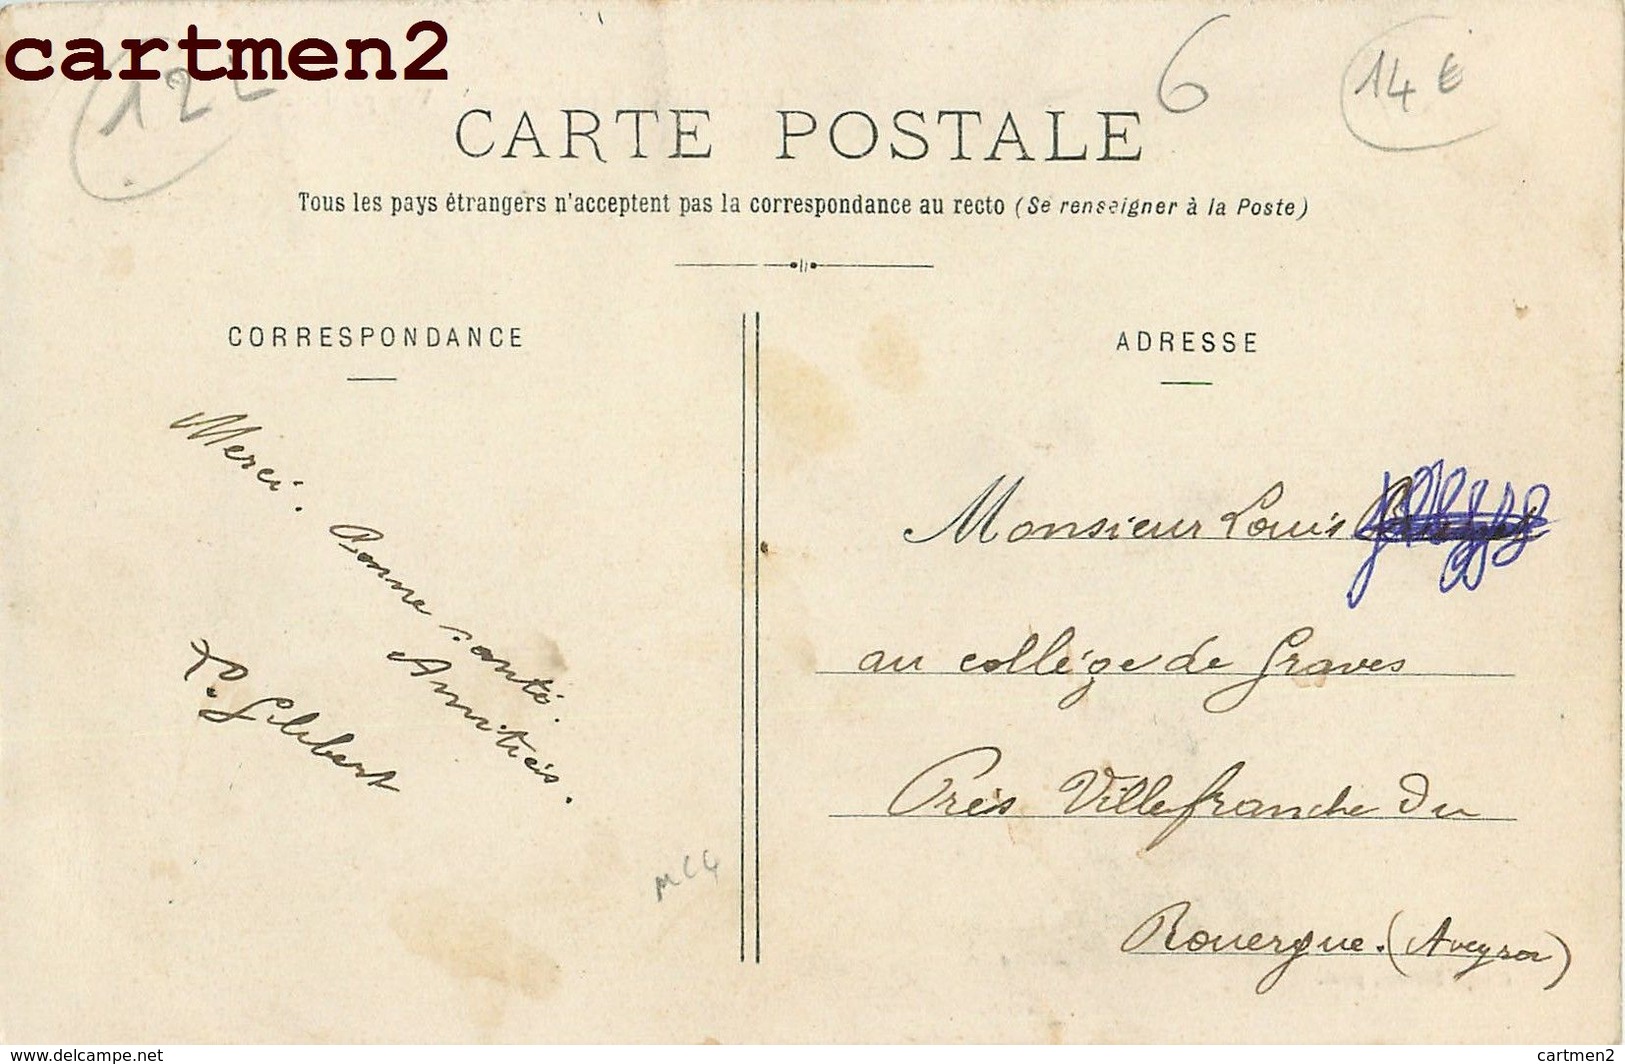 cartmen2
122
6
14 €
CARTE POSTALE
Tous les pays étrangers n'acceptent pas la correspondance au recto (Se renseigner à la Poste)
CORRESPONDANCE
Merci.
Bonne santé.
Amitiés.
L. Gilbert
MC4
ADRESSE
Monsieur Louis
au collége de Graves
Près Villefranche du
Rouergue. (Aveyron)
www.delcampe.net
cartmen2